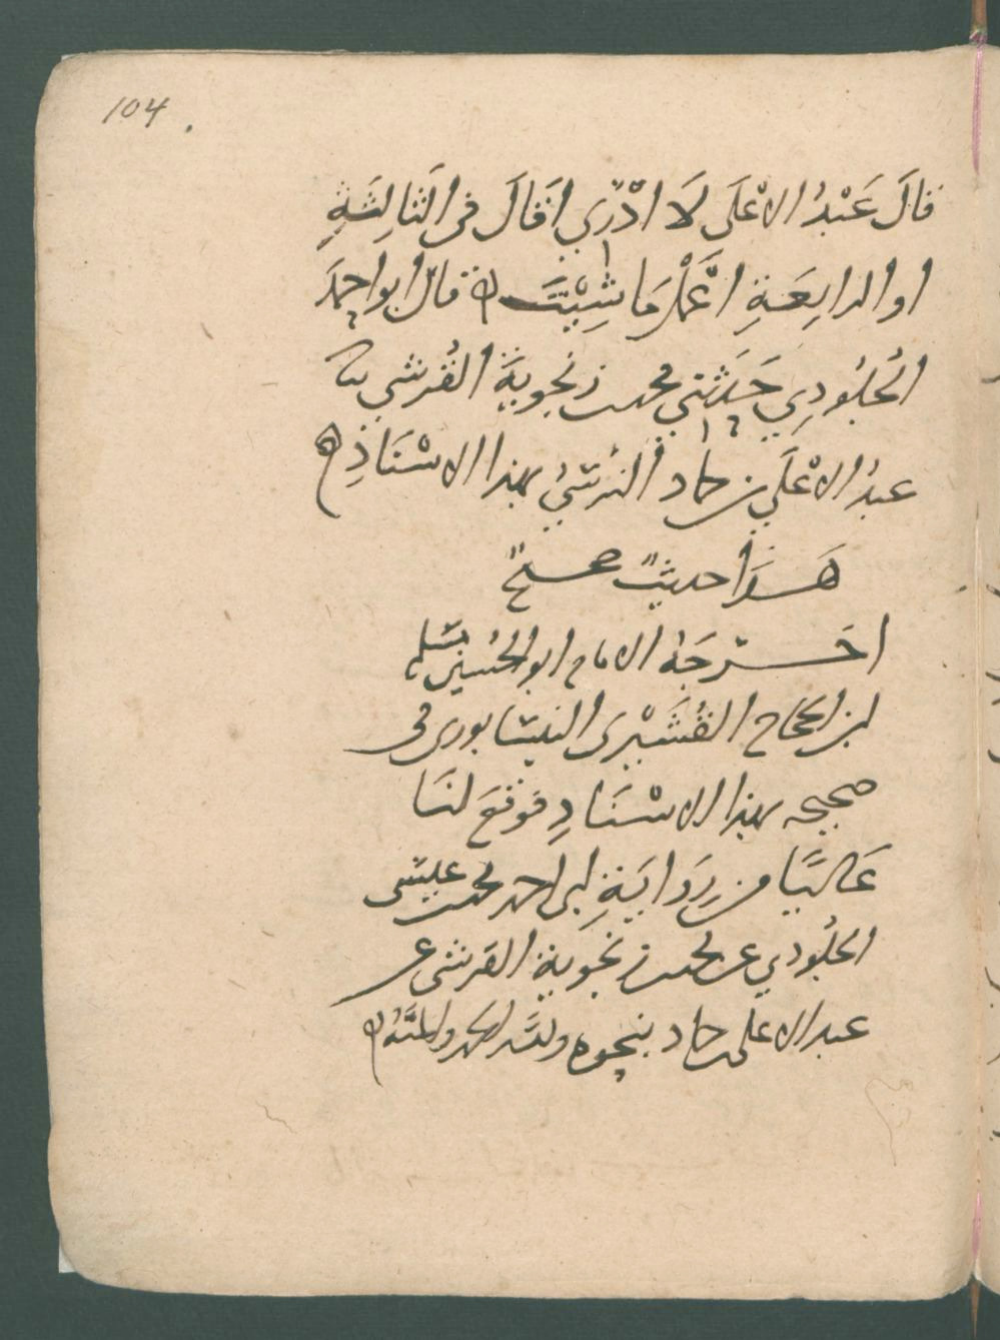 104
قَالَ عَبْدُ الاَعْلَى لَا اَدْرِي اَقَالَ فى الثَالِثَةِ
او الرابِعَةِ اعْمَلْ مَا شِئْتَ ه قال ابو احمَدَ
الجُلُودِي حَدَثَنِي محمد بن زنجويةَ القُرَشي نا
عبدُ الاعْلَى بن حماد النرسيُ بهذا الاسْنَادِ ه
هَذَا حديثٌ صحيحٌ
اخرَجَهُ الامام ابو الحُسين مسلم
ابن الحجاج القُشَيْرى النيسابورى فى
صحيحه بهذا الاسْنَادِ فوقعَ لنَا
عَاليًا من رِوَايَةِ ابى احمد محمد بن عيسى
الجلُودي عن محمد بن زنجوية القرشى عن
عبد الاعلى بن حماد بنحوه ولله الحمد والمنَّهُ ه